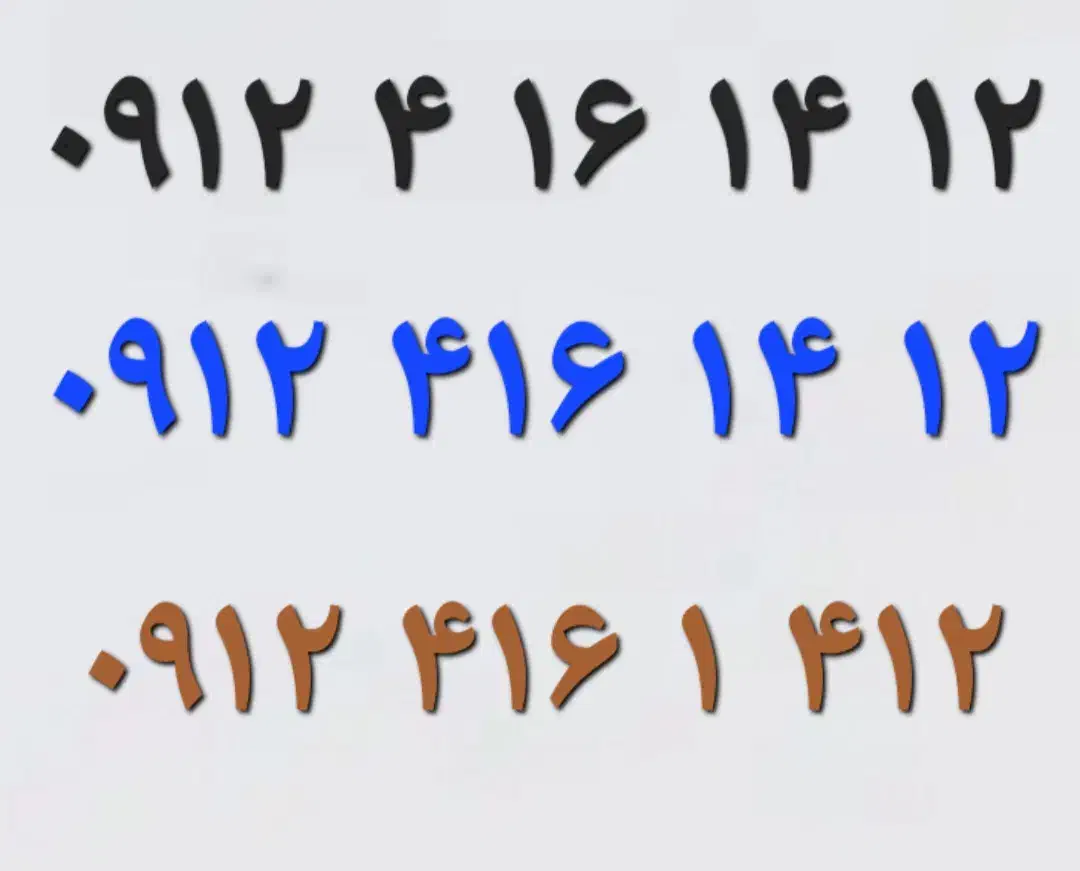 ۰۹۱۲ ۴ ۱۶ ۱۴ ۱۲
۰۹۱۲ ۴۱۶ ۱۴ ۱۲
۰۹۱۲ ۴۱۶ ۱ ۴۱۲